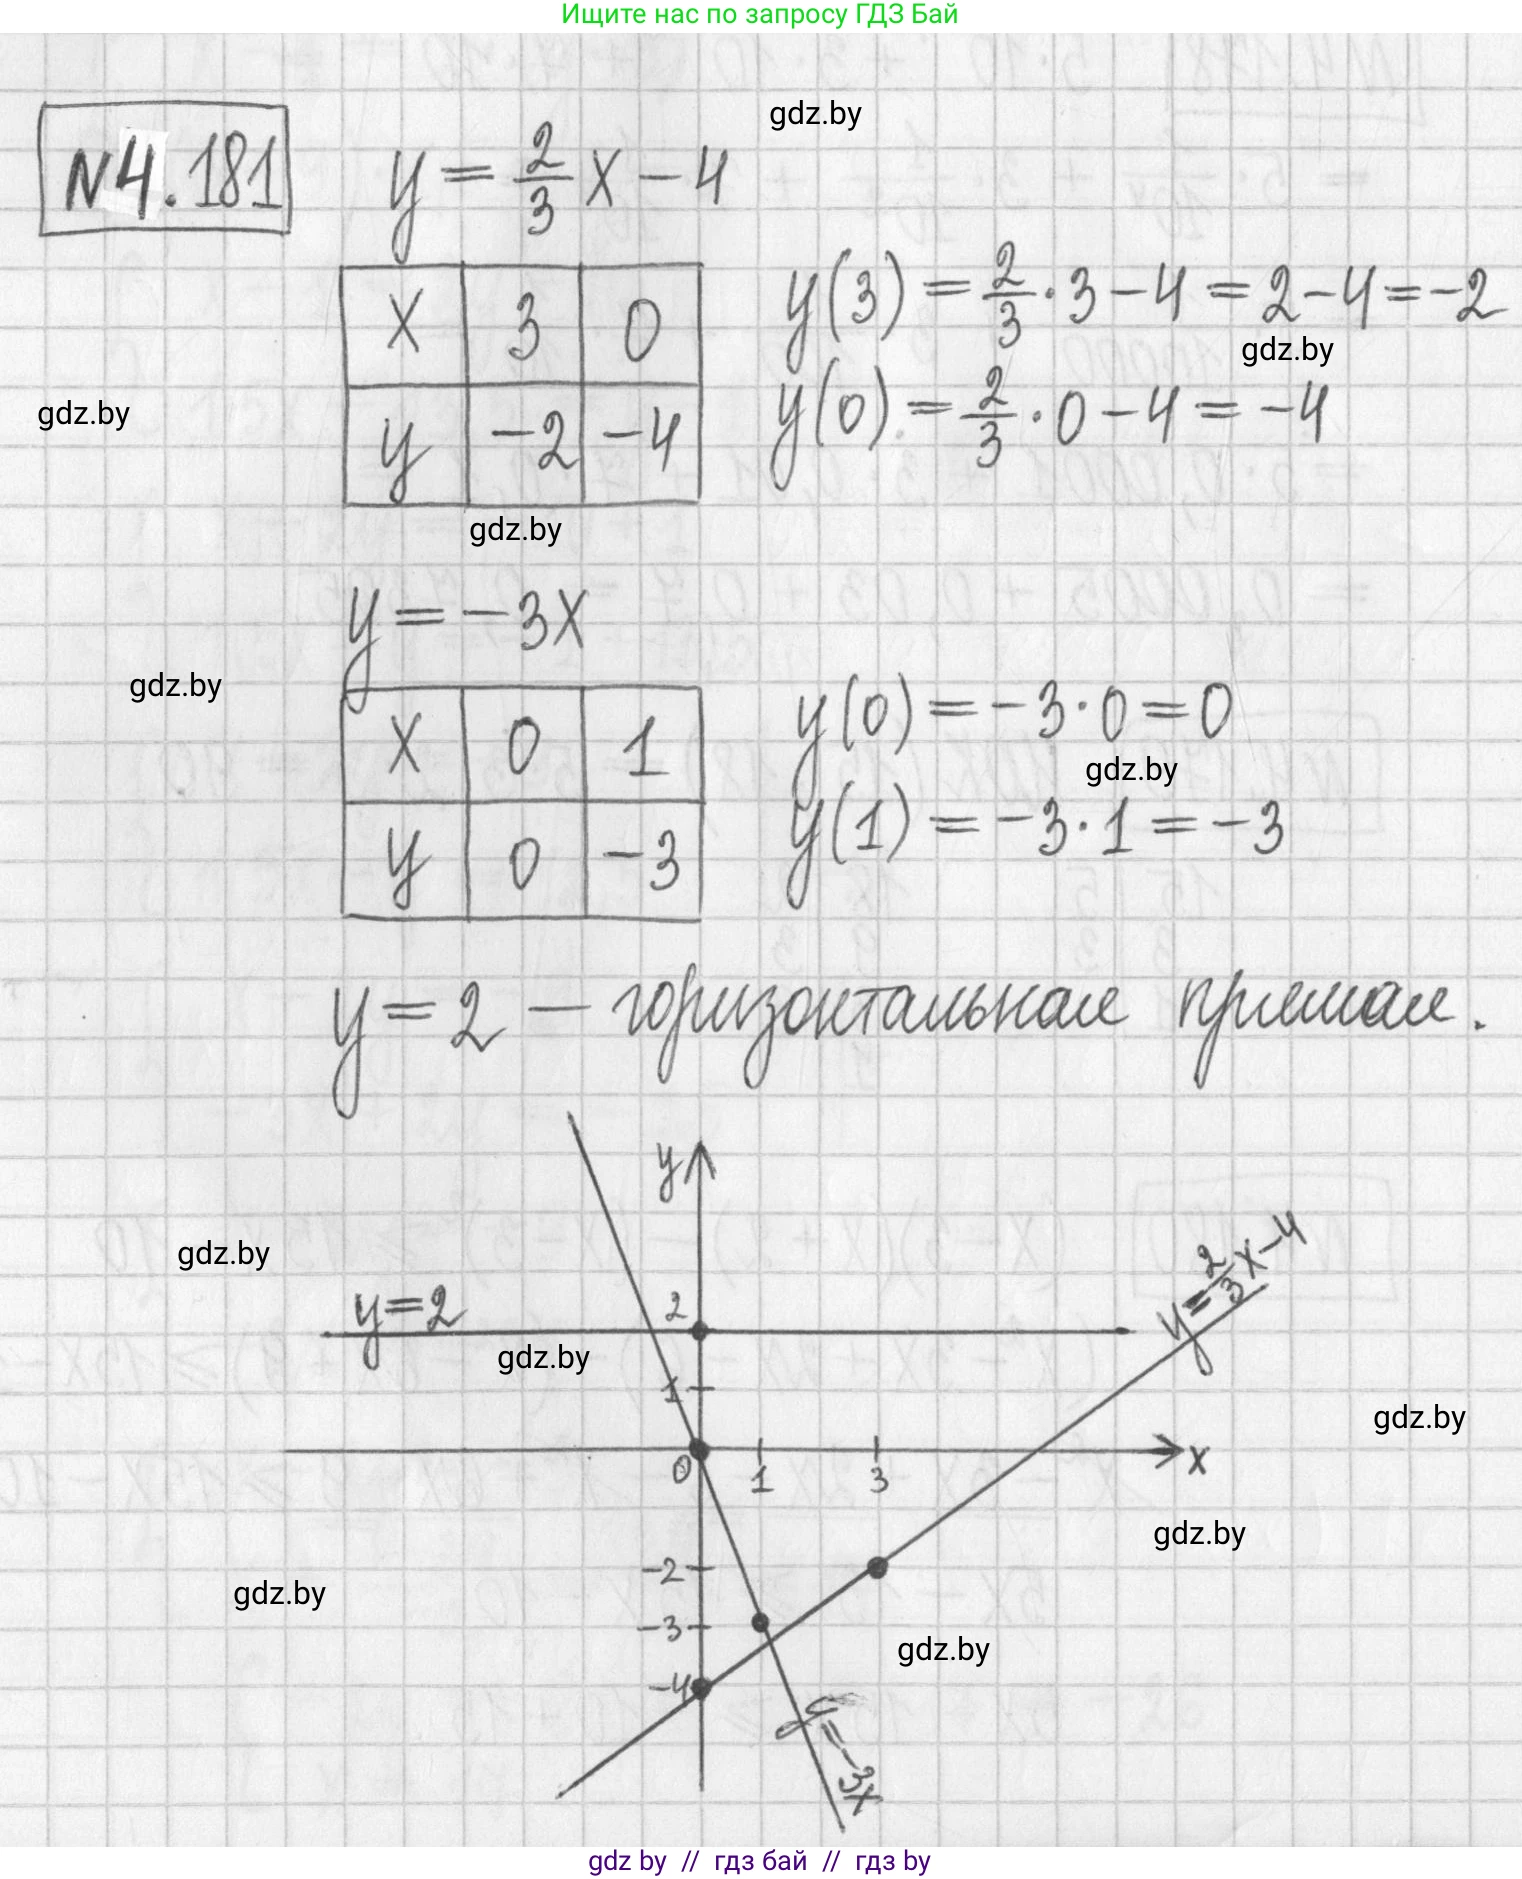 Ищите нас по запросу ГДЗ Бай
gdz.by
N4.181
y = 2/3 x - 4
x 3 0
y -2 -4
y(3) = 2/3 · 3 - 4 = 2 - 4 = -2
gdz.by
y(0) = 2/3 · 0 - 4 = -4
gdz.by
gdz.by
y = -3x
gdz.by
x 0 1
y 0 -3
y(0) = -3 · 0 = 0
gdz.by
y(1) = -3 · 1 = -3
y = 2 — горизонтальная прямая.
y
gdz.by
y = 2/3 x - 4
y = 2
2
gdz.by
1
gdz.by
0 1 3 x
gdz.by
-2
gdz.by
-3
gdz.by
-4
y = -3x
gdz by // гдз бай // гдз by